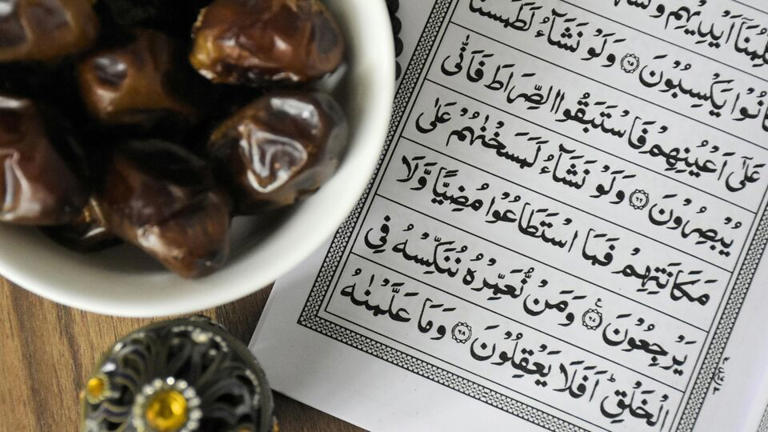 اَيْدِيْهِمْ
انُوْا يَكْسِبُوْنَ ۝٦٥ وَلَوْ نَشَآءُ لَطَمَسْنَا
عَلٰۤى اَعْيُنِهِمْ فَاسْتَبَقُوا الصِّرَاطَ فَاَنّٰى
يُبْصِرُوْنَ ۝٦٦ وَلَوْ نَشَآءُ لَمَسَخْنٰهُمْ عَلٰى
مَكَانَتِهِمْ فَمَا اسْتَطَاعُوْا مُضِيًّا وَّلَا
يَرْجِعُوْنَ ۝٦٧ وَمَنْ نُّعَمِّرْهُ نُنَكِّسْهُ فِى
الْخَلْقِ ؕ اَفَلَا يَعْقِلُوْنَ ۝٦٨ وَمَا عَلَّمْنٰهُ